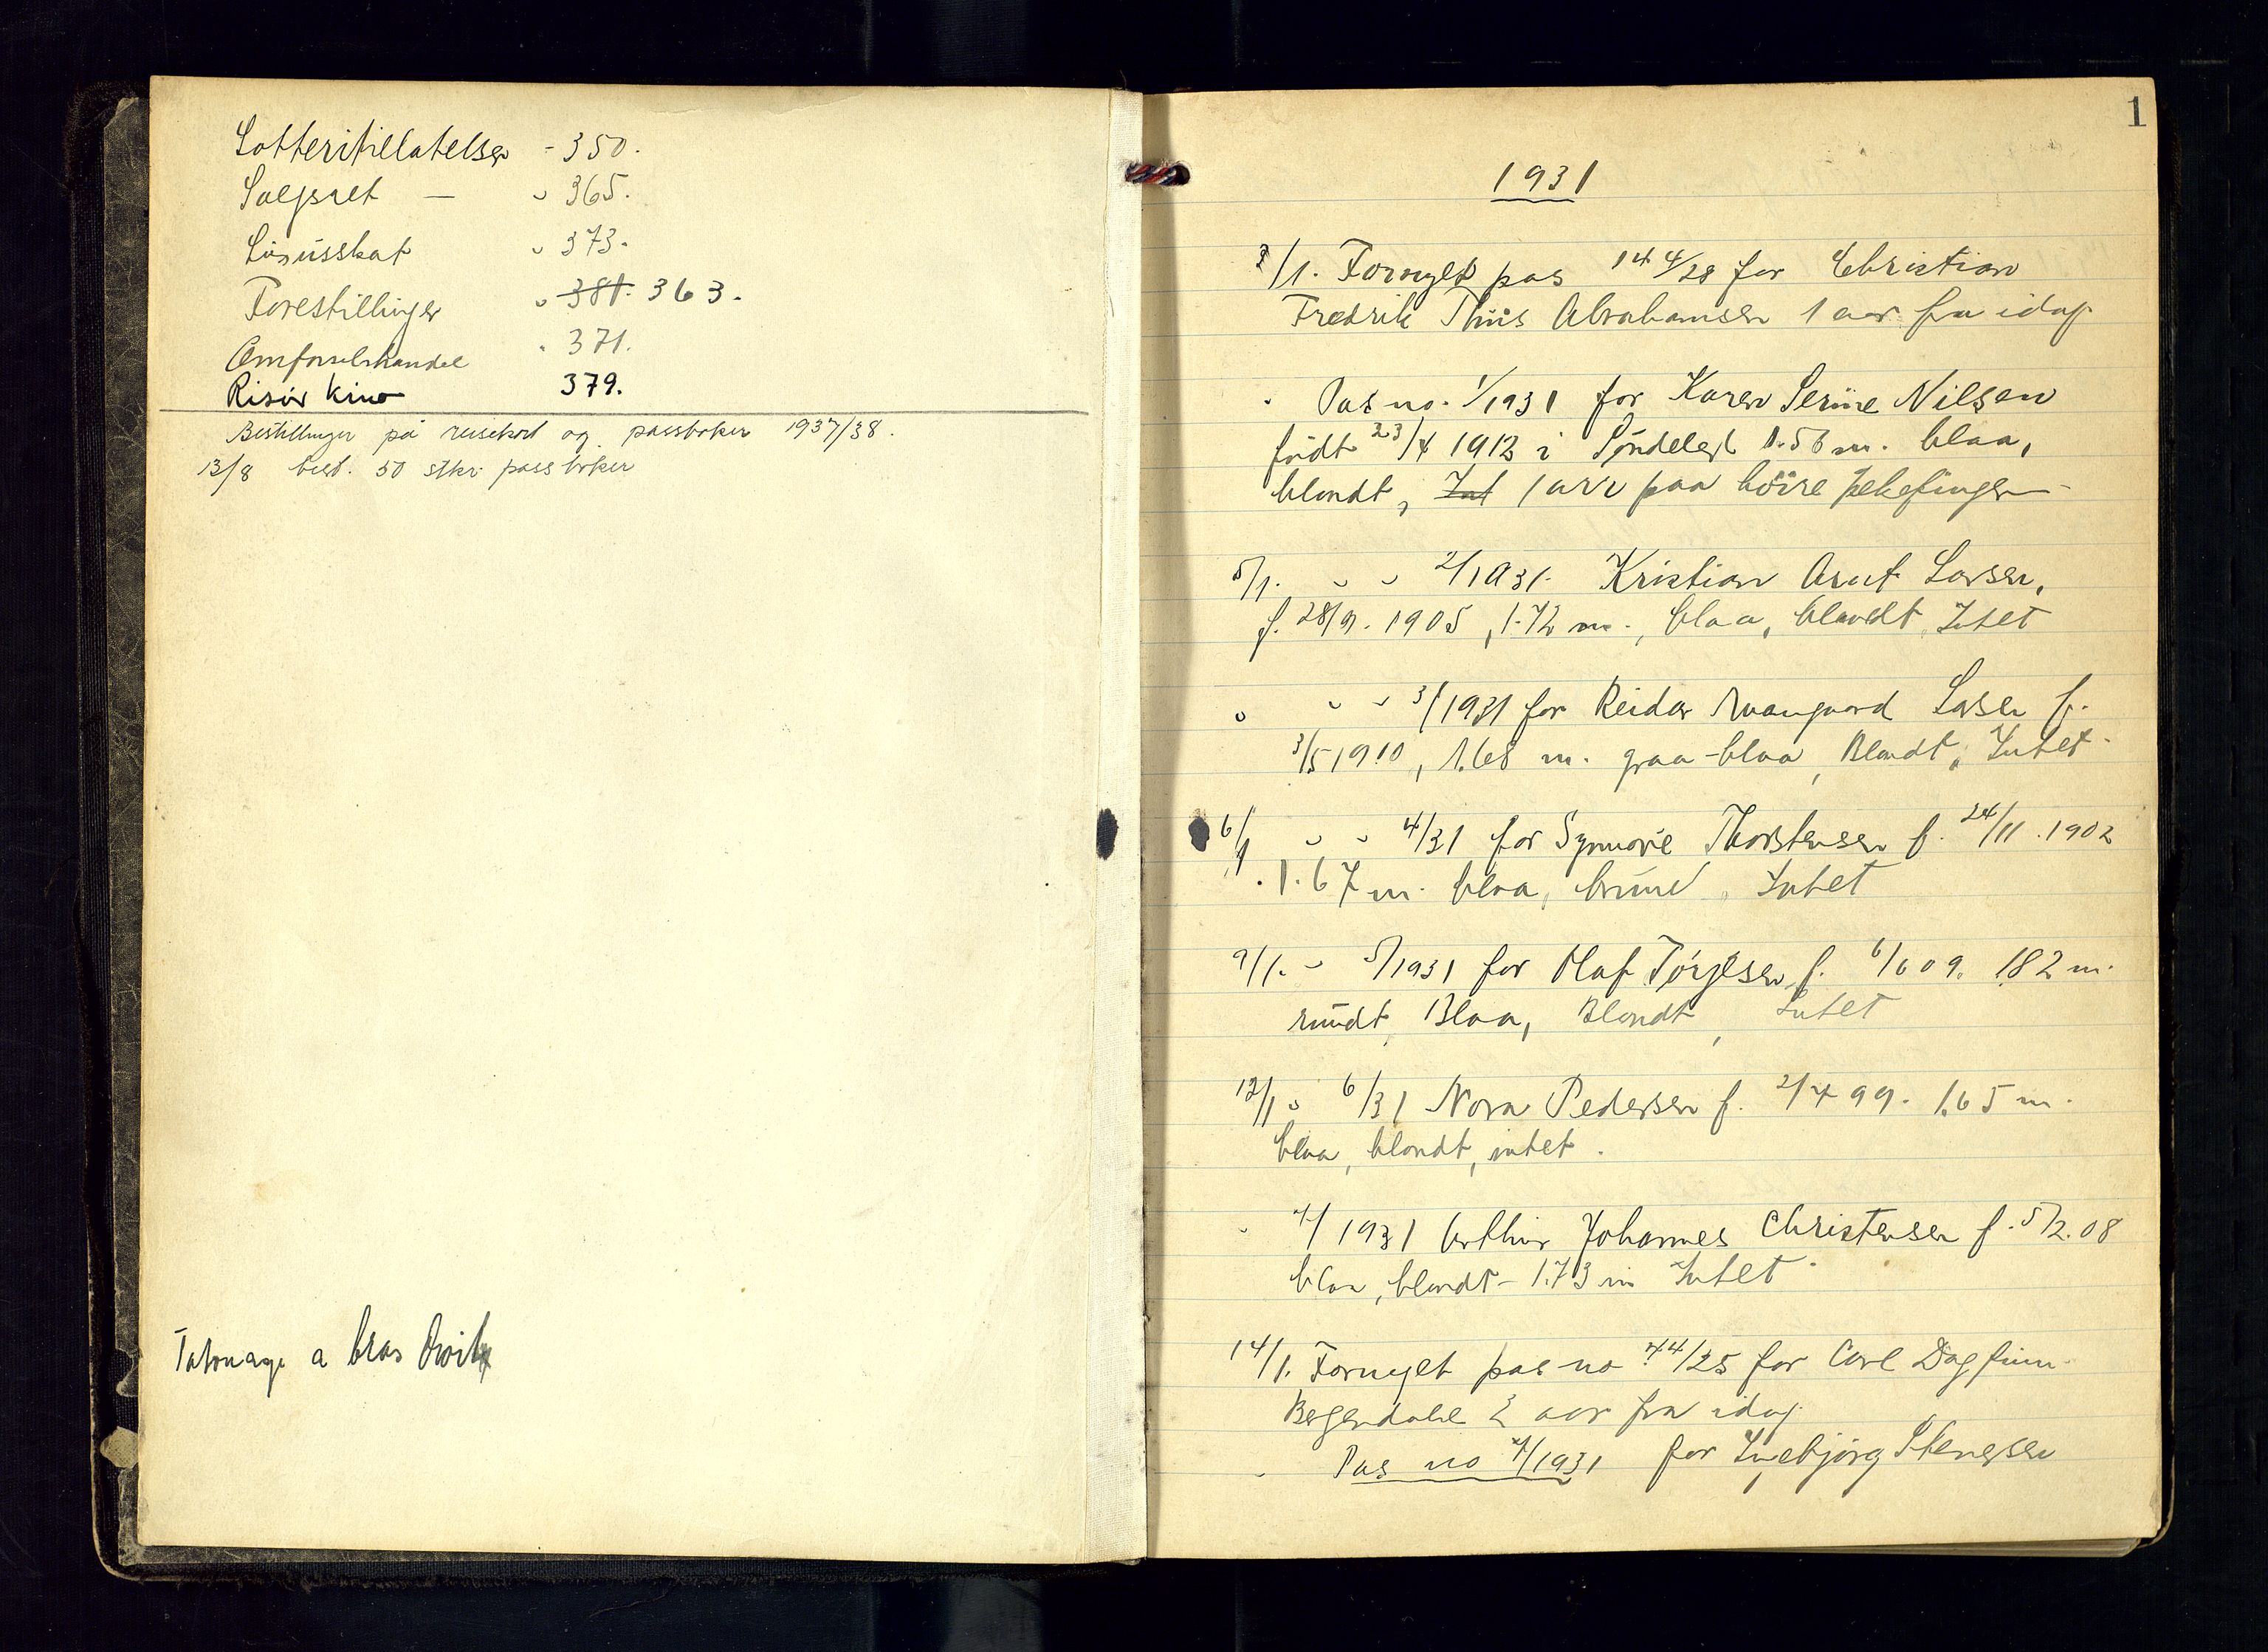 Lotteritillatelser - 350.
Salgsret — " 365.
Luxusskat " 373.
Forestillinger " 381. 363.
Omførselshandel " 371.
Risør Kino 379.
Bestillinger på reisekort og passbøker 1937/38.
13/8 best. 50 stkr. passbøker
Tatouage a bras droit
1
1931
3/1. Fornyet pas 144/28 for Christian
Fredrik Thiis Abrahamsen 1 aar fra idag
" Pas no. 1/1931 for Karen Serine Nilsen
født 23/4 1912 i Søndeled 1.56 m. blaa,
blondt, Int 1 arr paa høire pekefinger
5/1. " " 2/1931. Kristian Arnt Larsen,
f. 28/9. 1905, 1.72 m., blaa, blondt, Intet
" " " 3/1931 for Reidar Larsen f.
3/5 1910, 1.68 m. graa-blaa, Blondt, Intet
6/1 " " 4/31 for Synnøve Thorstensen f. 24/11. 1902
1.67 m. blaa, brune, Intet
9/1. " 5/1931 for Olaf Tørjesen f. 6/6 09. 182 m.
rundt, Blaa, Blondt, Intet
12/1 " 6/31 Nora Pedersen f. 2/4 99. 1.65 m.
blaa, blondt, intet.
" 7/1931 Arthur Johannes Christensen f. 5/2. 08
blaa, blondt - 1.73 m Intet
14/1. Fornyet pas no 44/25 for Carl Dagfinn
Bergendahl 2 aar fra idag
" Pas no /1931 for Ingebjørg Stenersen